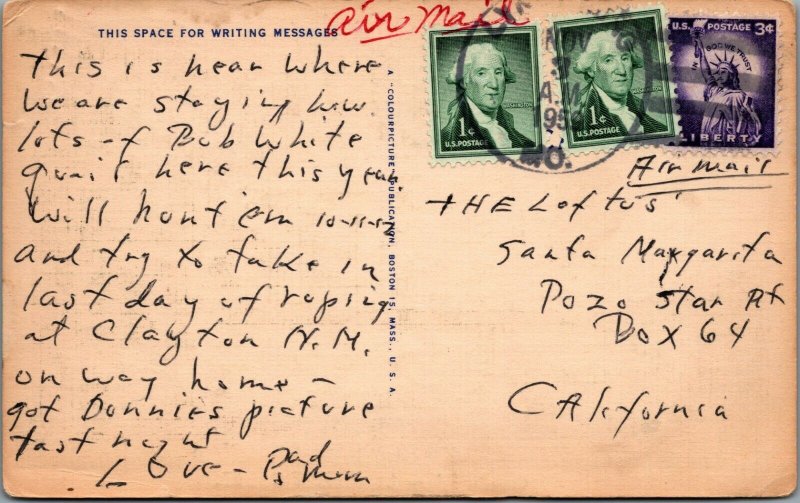 THIS SPACE FOR WRITING MESSAGES
Air Mail
This is near where
we are staying now
lots of Bob White
quail here this year
will hunt em
and try to take in
last day of roping
at Clayton N.M.
on way home -
got Donnies picture
last night
Love - Dad
Mom
A "COLOURPICTURE" PUBLICATION, BOSTON 15, MASS., U. S. A.
1¢
WASHINGTON
U.S. POSTAGE
1¢
WASHINGTON
U.S. POSTAGE
U.S. POSTAGE 3¢
IN GOD WE TRUST
LIBERTY
NOV
A.M
MO.
Air Mail
THE Loftus'
Santa Margarita
Pozo Star Rt
Box 64
California